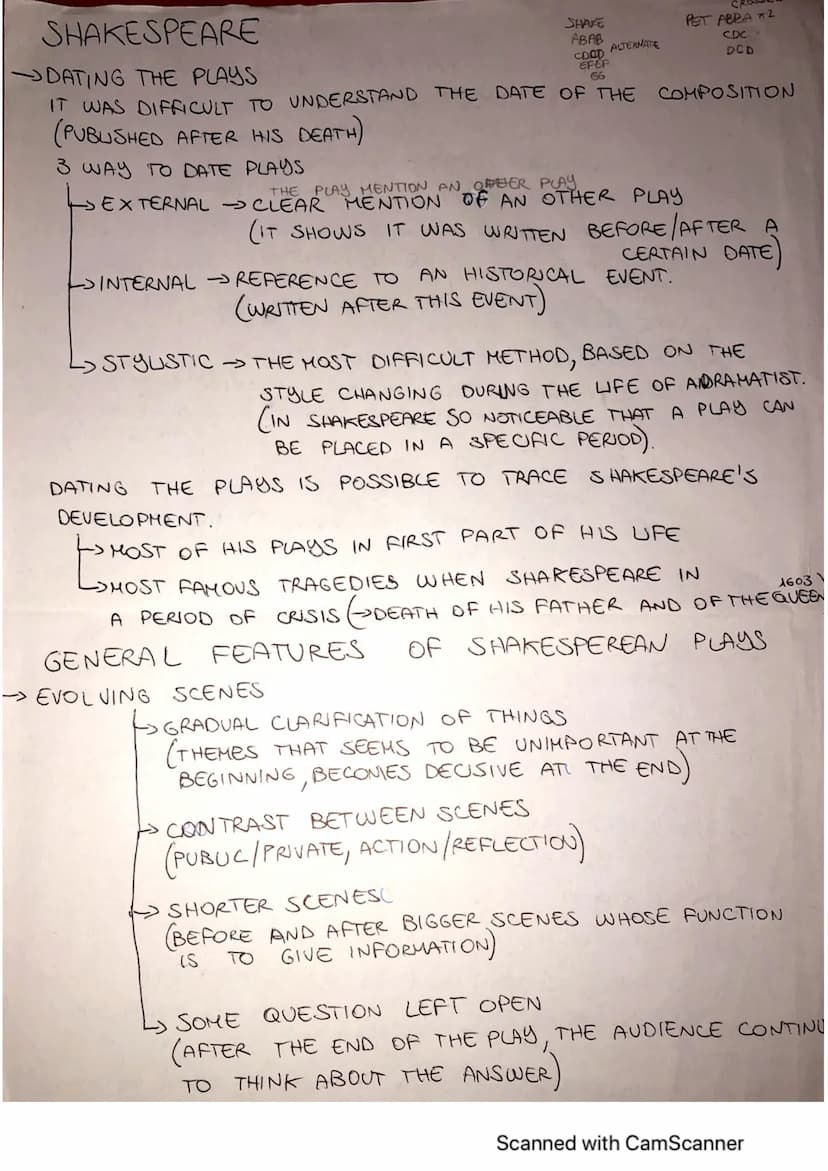 SHAKESPEARE
SHAKE
ABAB
CDCD ALTERNATE
EFEF
GG
PET ABBA x2
CDC
DCD
→DATING THE PLAYS
IT WAS DIFFICULT TO UNDERSTAND THE DATE OF THE COMPOSITION
(PUBLISHED AFTER HIS DEATH)
3 WAY TO DATE PLAYS
THE PLAY MENTION AN OTHER PLAY
→EXTERNAL →CLEAR MENTION OF AN OTHER PLAY
(IT SHOWS IT WAS WRITTEN BEFORE/AFTER A
CERTAIN DATE)
→INTERNAL →REFERENCE TO AN HISTORICAL EVENT.
(WRITTEN AFTER THIS EVENT)
→STYLISTIC →THE MOST DIFFICULT METHOD, BASED ON THE
STYLE CHANGING DURING THE LIFE OF A DRAMATIST.
(IN SHAKESPEARE SO NOTICEABLE THAT A PLAY CAN
BE PLACED IN A SPECIFIC PERIOD).
DATING THE PLAYS IS POSSIBLE TO TRACE SHAKESPEARE'S
DEVELOPMENT.
→MOST OF HIS PLAYS IN FIRST PART OF HIS LIFE
→MOST FAMOUS TRAGEDIES WHEN SHAKESPEARE IN
1603
A PERIOD OF CRISIS (→DEATH OF HIS FATHER AND OF THE QUEEN
GENERAL FEATURES OF SHAKESPEREAN PLAYS
→ EVOLVING SCENES
→GRADUAL CLARIFICATION OF THINGS
(THEMES THAT SEEMS TO BE UNIMPORTANT AT THE
BEGINNING, BECOMES DECISIVE AT THE END)
→ CONTRAST BETWEEN SCENES
(PUBLIC/PRIVATE, ACTION/REFLECTION)
→ SHORTER SCENES
(BEFORE AND AFTER BIGGER SCENES WHOSE FUNCTION
IS TO GIVE INFORMATION)
→ SOME QUESTION LEFT OPEN
(AFTER THE END OF THE PLAY, THE AUDIENCE CONTINU
TO THINK ABOUT THE ANSWER)
Scanned with CamScanner